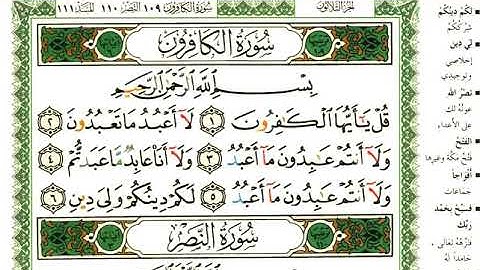 الجزء الثلاثون
سورة الكافرون ١٠٩ النصر ١١٠ المسد ١١١
سُورَةُ الكَافِرُونَ
بِسْمِ اللَّهِ الرَّحْمَٰنِ الرَّحِيمِ
قُلْ يَا أَيُّهَا الْكَافِرُونَ ١ لَا أَعْبُدُ مَا تَعْبُدُونَ ٢
وَلَا أَنتُمْ عَابِدُونَ مَا أَعْبُدُ ٣ وَلَا أَنَا عَابِدٌ مَّا عَبَدتُّمْ ٤
وَلَا أَنتُمْ عَابِدُونَ مَا أَعْبُدُ ٥ لَكُمْ دِينُكُمْ وَلِيَ دِينِ ٦
سُورَةُ النَّصْرِ
لَكُمْ دِينُكُمْ
شِرْكُكُمْ
لِيَ دِينِ
إخلاصي
وتوحيدي
نَصْرُ الله
عَوْنُه لك
على الأعداء
الفَتْحُ
فَتْحُ مكة وغيرها
أفْوَاجاً
جماعات
فَسَبِّحْ بِحَمْدِ
رَبِّكَ
فَنَزِّهْهُ تعالى،
حامداً له